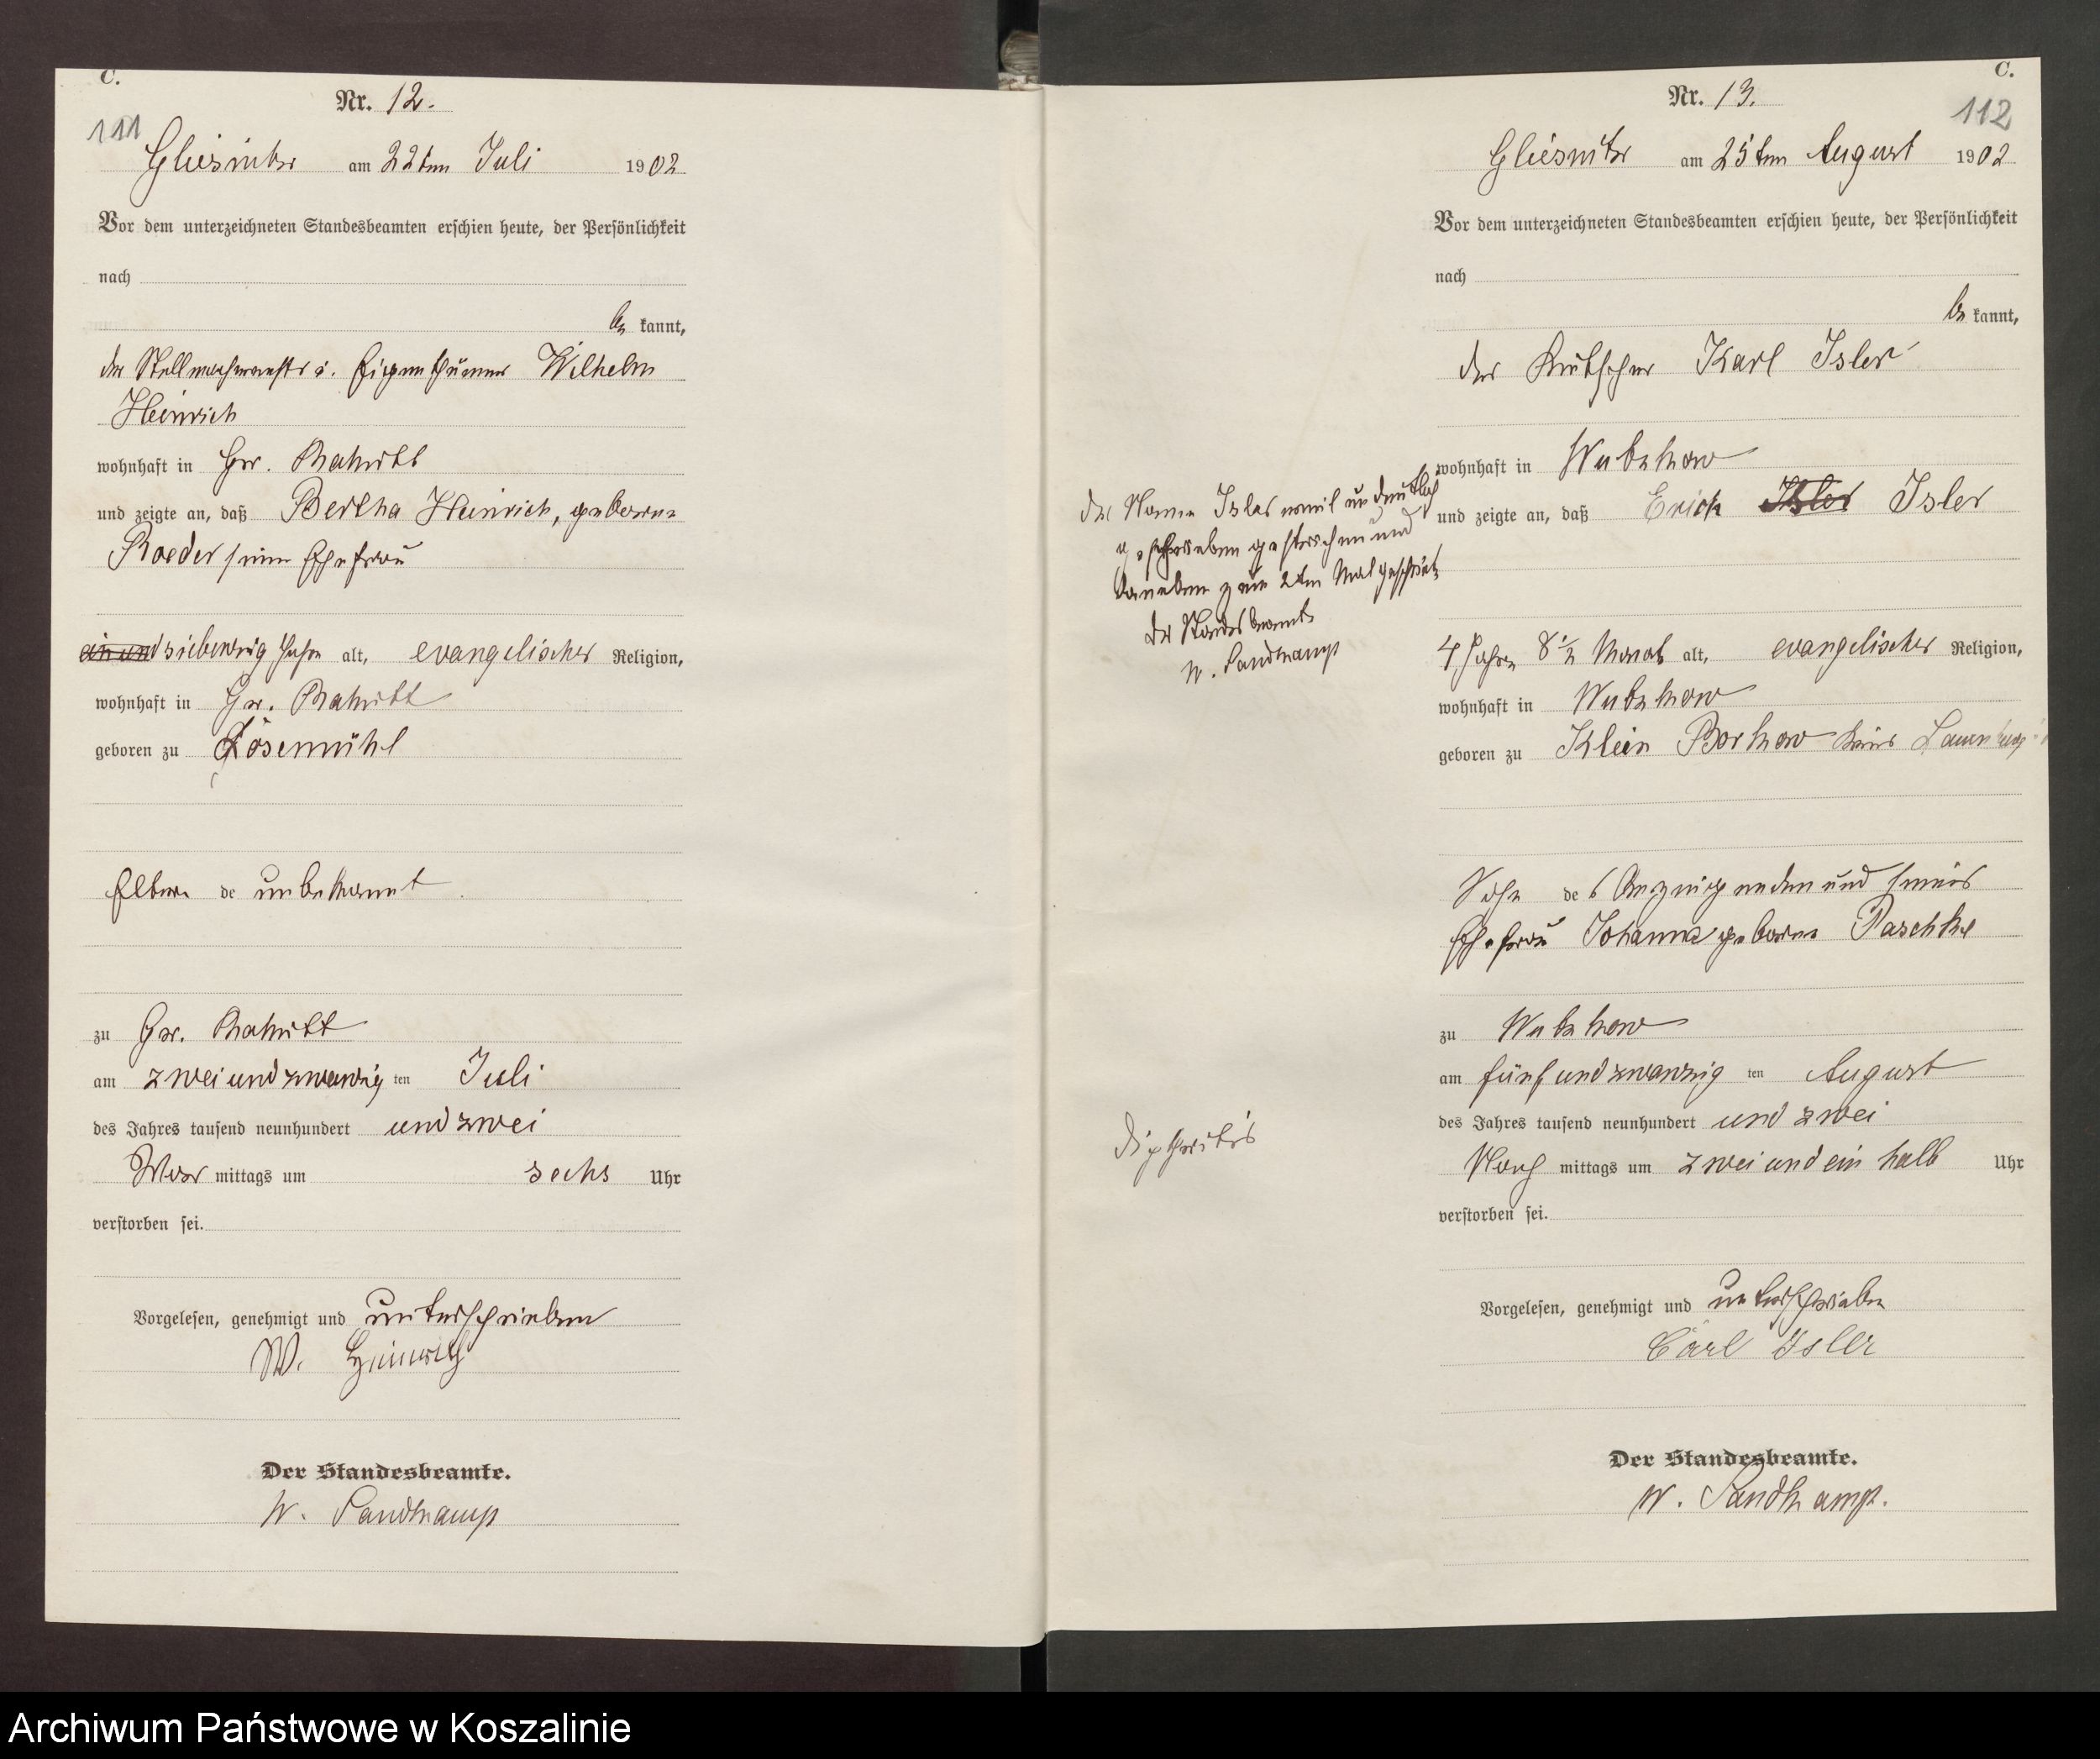 C.
Nr. 12.
111
Gliesnitz am 22ten Juli 1902
Vor dem unterzeichneten Standesbeamten erschien heute, der Persönlichkeit
nach
be kannt,
der Stellmachermeister u. Eigenthümer Wilhelm
Heinrich
wohnhaft in Gr. Rakitt
und zeigte an, daß Bertha Heinrich, geborene
Roeder seine Ehefrau
ein und siebenzig Jahre alt, evangelischer Religion,
wohnhaft in Gr. Rakitt
geboren zu Lösemühl
Eltern de unbekannt.
zu Gr. Rakitt
am zweiundzwanzig ten Juli
des Jahres tausend neunhundert und zwei
Vor mittags um sechs Uhr
verstorben sei.
Vorgelesen, genehmigt und unterschrieben
W. Heinrich
Der Standesbeamte.
W. Sandkamp
C.
Nr. 13.
112
Gliesnitz am 25ten August 1902
Vor dem unterzeichneten Standesbeamten erschien heute, der Persönlichkeit
nach
be kannt,
der Kutscher Karl Isler
wohnhaft in Wutzkow
und zeigte an, daß Erich Isler Isler
der Name Isler weil undeutlich
geschrieben gestrichen und
daneben zum 2ten Mal
der Standesbeamte
W. Sandkamp
4 Jahre 8 1/2 Monat alt, evangelischer Religion,
wohnhaft in Wutzkow
geboren zu Klein Borkow Kreis Lauenburg
Sohn des Anzeigenden und seiner
Ehefrau Johanna geborene Paschke
zu Wutzkow
am fünfundzwanzig ten August
des Jahres tausend neunhundert und zwei
Nach mittags um zwei und ein halb Uhr
verstorben sei.
diptheritis
Vorgelesen, genehmigt und unterschrieben
Carl Isler
Der Standesbeamte.
W. Sandkamp.
Archiwum Państwowe w Koszalinie